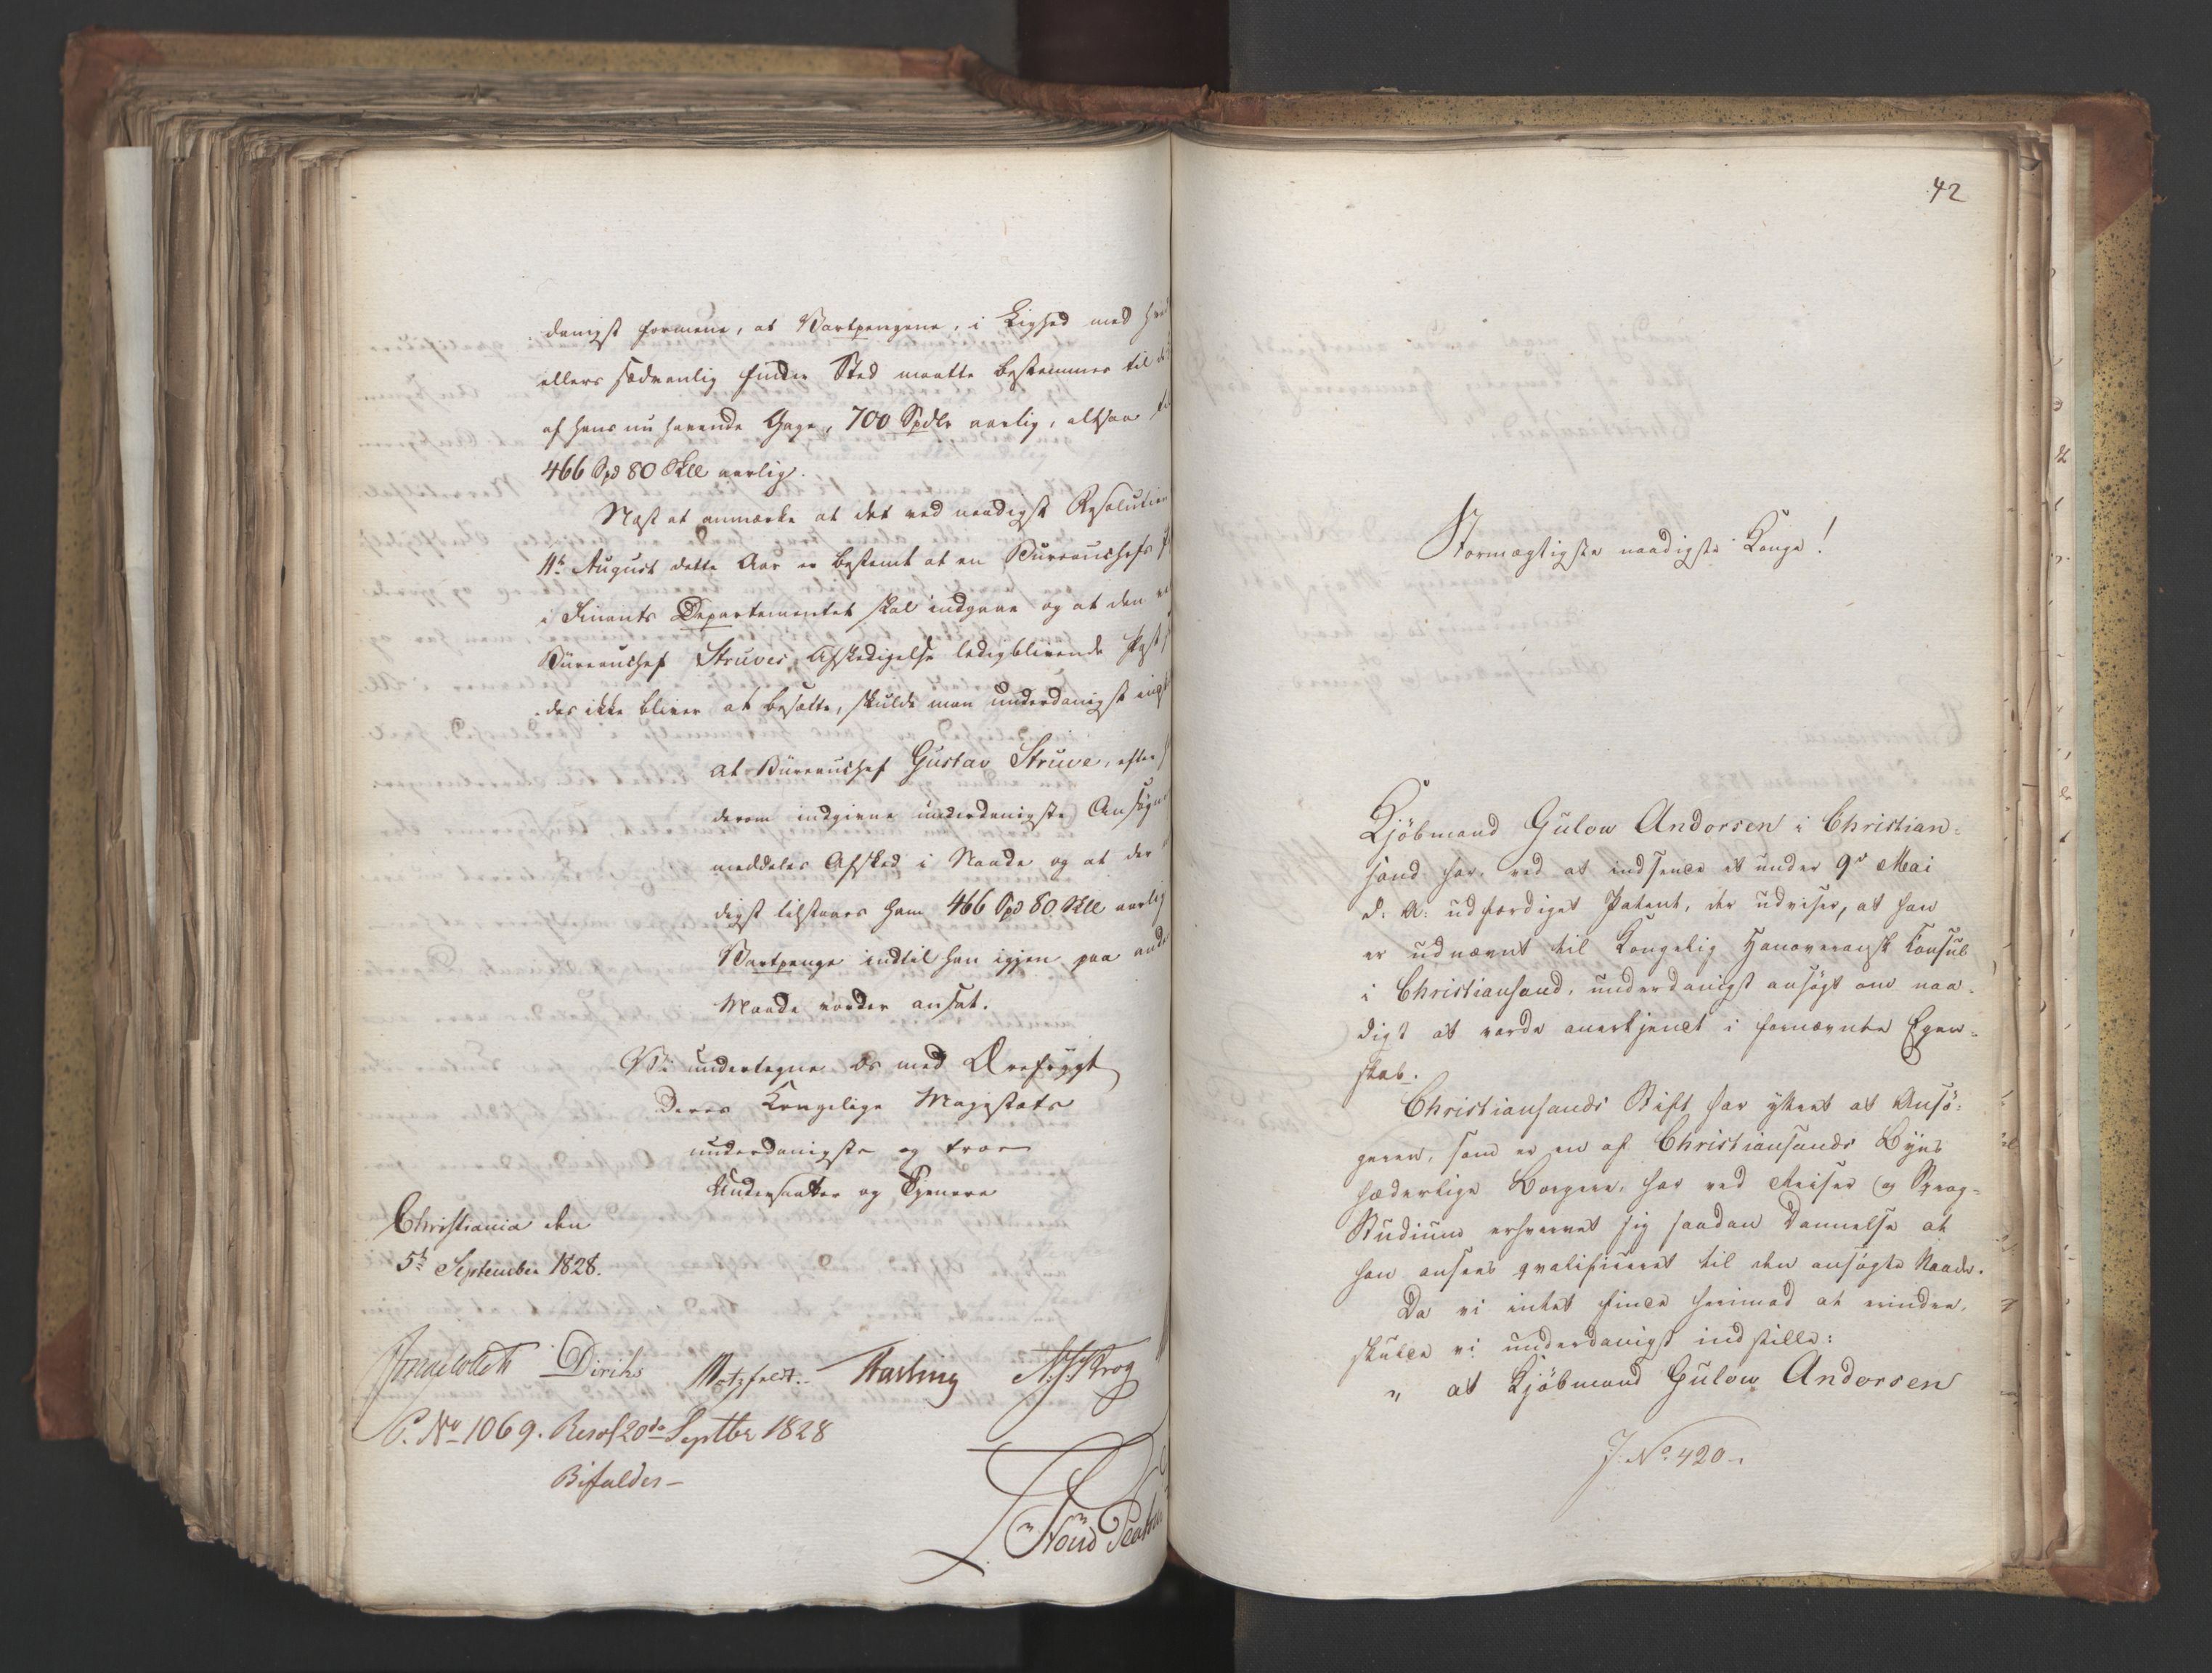 danigst formene, at Vartpengene, i Lighed med
ellers sædvanlig finder Sted maatte bestemmes til
af hans nu havende Gage, 700 Spdlr aarlig, altsaa
466 Spd 80 Skll aarlig.
Næst at anmærke at det ved naadigst Resolution
11te August dette Aar er bestemt at en Bureauchefs
i Finants Departementet skal indgaae og at den
Bureauchef Struves Afskedigelse ledigblivende Post
des ikke bliver at besætte, skulde man underdanigst
at Bureauchef Gustav Struve, efter
derom indgivne underdanigste Ansøgn
meddeles Afsked i Naade og at der
digst tilstaaes ham 466 Spd 80 Skll aarlig
Vartpenge indtil han igjen paa
Maade vorder ansat.
Vi undertegne os med Ærefrygt
Deres Kongelige Majestæts
underdanigste og troe
Undersaatter og Tjenere
Christiania den
5te September 1828.
Diriks Motzfeldt. N. J. Krog
C. No 1069. Resol 20de Septbr 1828
Bifaldes
42
Stormægtigste naadigste Konge!
Kjöbmand Gulow Andorsen i Christian-
sand har, ved at indsende et under 9de Mai
d. A: udfærdiget Patent, der udviser, at han
er udnævnt til Kongelig Hanoveransk Consul
i Christiansand, underdanigst ansøgt om naa-
digst at vorde anerkjendt i fornævnte Egen-
skab.
Christiansands Stift har yttret at Ansö-
geren, som er en af Christiansands Byes
hæderlige Borgere, har ved Reiser og Sprog-
Studium erhvervet sig saadan Dannelse at
han ansees qvalificeret til den ansøgte Naade.
Da vi intet finde herimod at erindre,
skulle vi underdanigst indstille:
" at Kjöbmand Gulow Andorsen
J. No. 420